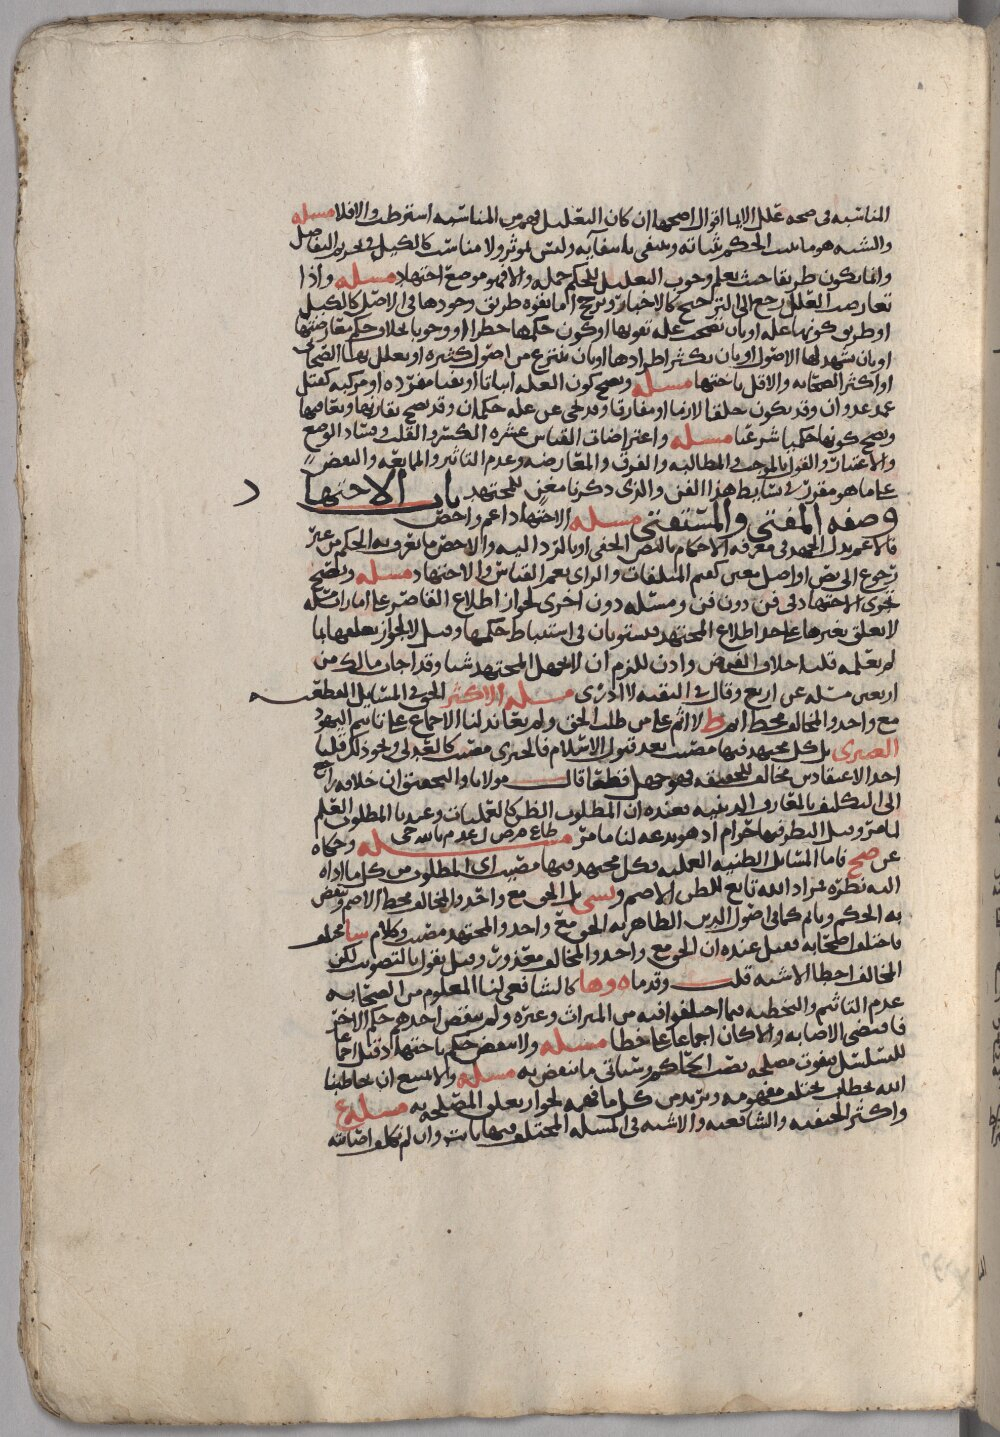 المناسبه في صحه علل الايما اقوال اصحها ان كان التعليل فهم من المناسبه اشترطت والا فلا مسله
والشبه هو ما يثبت الحكم بثباته وينتفي بانتفايه وليس بموثر ولا مناسب كالكيل في تحريم التفاضل
وانما يكون طريقا حيث يعلم وجوب التعليل للحكم جمله والا فهو موضع اجتهاد مسله واذا
تعارضت العلل رجع الى الترجيح كالاخبار وترجح اما بقوه طريق وجودها في الاصل كالكيل
او طريق كونها عله او بان تصحب عله تقويها او كون حكمها حظرا او وجوبا بخلاف حكم معارضتها
او بان تشهد لها الاصول او بان يكثر اطرادها او بان تنتزع من اصول كثيره او يعلل بها الصحابي
او اكثر الصحابه والاقل باجتهاد مسله ويصح كون العله اثباتا او نفيا مفرده او مركبه كقتل
عمد عدوان وقد يكون خلقا لازما او مفارقا وقد يجي عن عله حكمان وقد يصح تقارنهما وتعاقبهما
ويصح كونها حكما شرعيا مسله واعتراضات القياس عشره الكسر والقلب وفساد الوضع
والاعتبار والقول بالموجب والمطالبه والفرق والمعارضه وعدم التاثير والممانعه والنقض
على ما هو مقرر في بسايط هذا الفن والذي ذكرنا مغن للمجتهد باب الاجتهاد
وصفه المفتي والمستفتي مسله الاجتهاد اعم واخص
فالاعم بذل الجهد في معرفه الاحكام بالنص الخفي او بالرد اليه والاخص ما تعرف به الحكم من غير
رجوع الى نص او اصل معين كقيم المتلفات والراي يعم القياس والاجتهاد مسله ويصح
تجزي الاجتهاد في فن دون فن ومسله دون اخرى لجواز اطلاع القاصر على امارات مسله
لا تعلق بغيرها على حد اطلاع المجتهد فيستويان في استنباط حكمها وقيل لا لجواز تعلقها بما
لم يعلمه قلنا خلاف الفرض واذن للزم ان لا يجهل المجتهد شيا وقد اجاب مالك من
اربعين مسله عن اربع وقال في البقيه لا ادري مسله الاكثر الحق في المسايل القطعيه
مع واحد والمخالف مخط اثم ط لا اثم على من طلب الحق ولم يعاند لنا الاجماع على تاثيم اليهود
العنبري بل كل مجتهد فيها مصيب بعد قبول الاسلام فالجبري مصيب كالعدلي ونحو ذلك قلنا
احد الاعتقادين مخالف للحقيقه فهو جهل قطعا قال مولانا والتحقيق ان خلافه راجع
الى التكليف بالمعارف الدينيه فعنده ان المطلوب الظن كالعمليات وعندنا المطلوب العلم
لما مر وقيل النظر فيها حرام اذ هو بدعه لنا ما مر مسله وحكاه
عن صح فاما المسايل الظنيه العمليه فكل مجتهد فيها مصيب اي المطلوب من كل ما اداه
اليه نظره فمراد الله تابع للظن الاصم بل الحق مع واحد والمخالف مخط الاصم وينقض
به الحكم وياثم كما في اصول الدين الظاهريه الحق مع واحد والمجتهد مصيب وكلام مختلف
فاختلف اصحابه فقيل عنده ان الحق مع واحد والمخالف معذور وقيل يقول بالتصويب لكن
المخالف اخطا الاشبه قلت وقد ما كالشافعي لنا المعلوم من الصحابه
عدم التاثيم والتخطيه فيما اختلفوا فيه من الميراث وغيره ولم ينقض احدهم حكم الاخر
فاقتضى الاصابه والا كان اجماعا على خطا مسله ولا ينقض حكم باجتهاد قبل اجماعا
للتسلسل بتفوت مصلحه نصب الحاكم وسياتي ما ينقض به مسله ولا يمتنع ان يخاطبنا
الله بخطاب يختلف مفهومه ويريد من كل ما فهمه لجواز تعلق المصلحه به مسله ع
واكثر الحنفيه والشافعيه والاشبه في المسله المختلف فيها ثابت وان لم نكلف اصابته